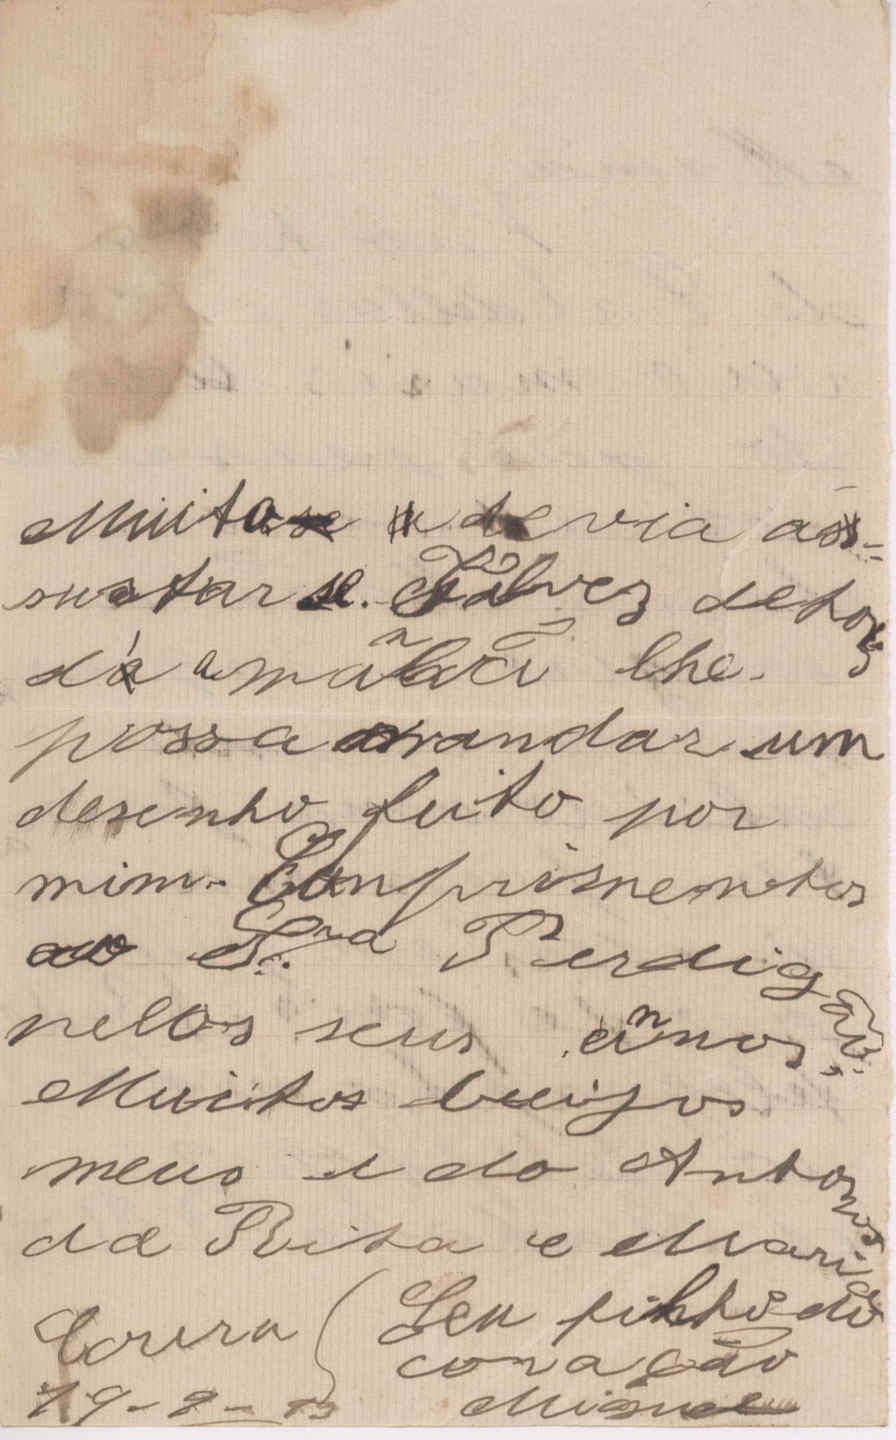 Muito se devia as-
sustar se. Talvez de to
da amanhã lhe
possa mandar um
desenho feito por
mim. Conprimentos
ao S.ra Perdigão
pelos seus annos.
Muitos beijos
meus e do Antonos
da Rita e Maria
Seu filho do
coração
Miguel
Coura
19-8-